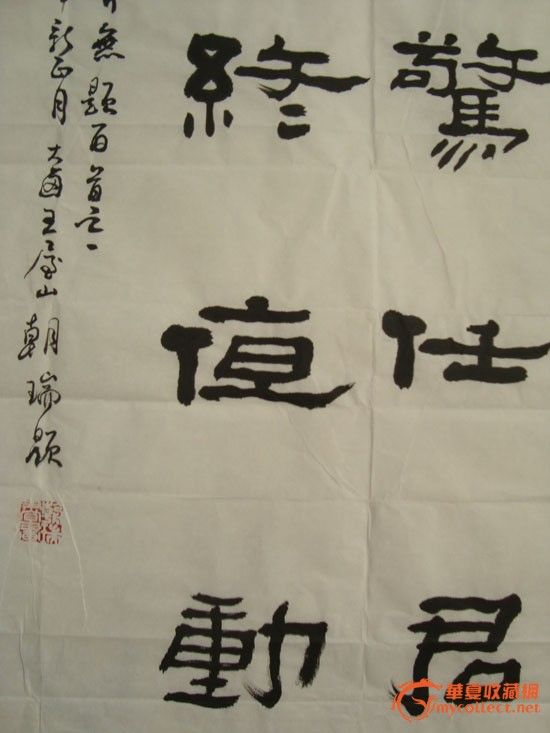 驚任君
終值動
無題百首之一
新正月大鹵王屋山朝瑞題
華夏收藏網
mycollect.net